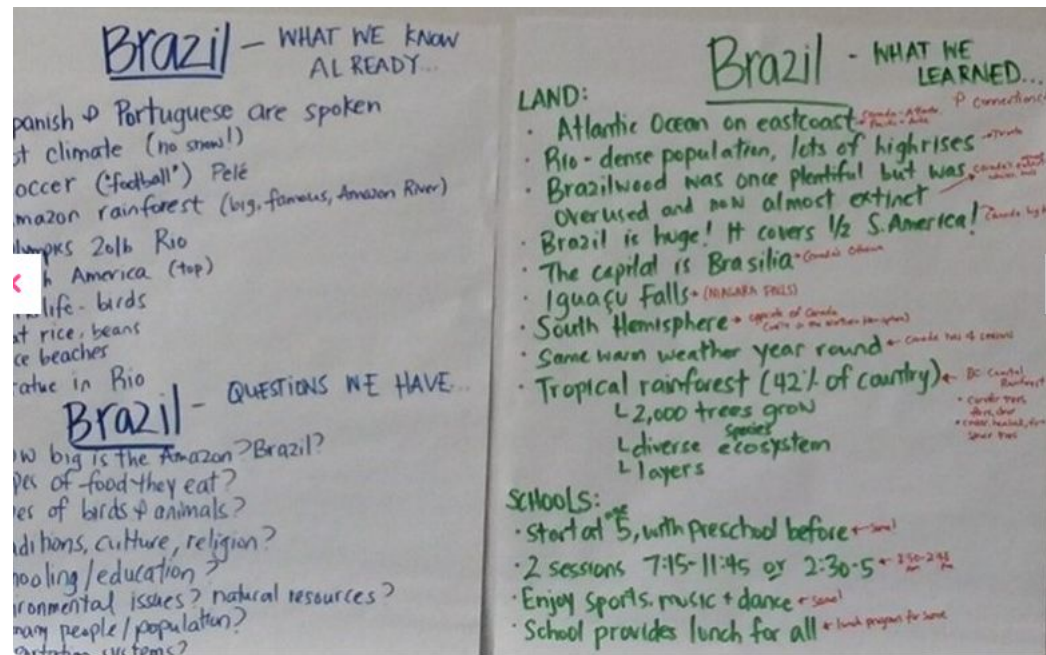 Brazil - WHAT WE KNOW
ALREADY...
panish & Portuguese are spoken
t climate (no snow!)
occer ("football") Pelé
mazon rainforest (big, famous, Amazon River)
lympics 2016 Rio
h America (top)
life - birds
at rice, beans
ce beaches
atue in Rio
Brazil - QUESTIONS WE HAVE...
ow big is the Amazon? Brazil?
pes of food they eat?
es of birds & animals?
aditions, culture, religion?
hooling/education?
ironmental issues? natural resources?
many people/population?
systems?
Brazil - WHAT WE
LEARNED...
connections
LAND:
· Atlantic Ocean on eastcoast
· Rio - dense population, lots of highrises
· Brazilwood was once plentiful but was
overused and now almost extinct
· Brazil is huge! It covers 1/2 S. America!
· The capital is Brasilia Canada's Ottawa
· Iguaçu Falls (NIAGARA FALLS)
· South Hemisphere opposite of Canada
(we're in the Northern Hemisphere)
· Same warm weather year round Canada has 4 seasons
· Tropical rainforest (42% of country) BC Coastal
Rainforest
2,000 trees grow
species
diverse ecosystem
layers
SCHOOLS:
· Start at age 5, with preschool before same!
· 2 sessions 7:15-11:45 or 2:30-5
· Enjoy sports, music + dance same!
· School provides lunch for all lunch program for some